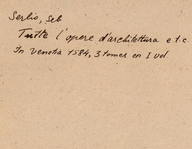 Serlio, Seb
Tutte l'opere d'architettura etc.
In Venetia 1584, 3 tomes en 1 vol.